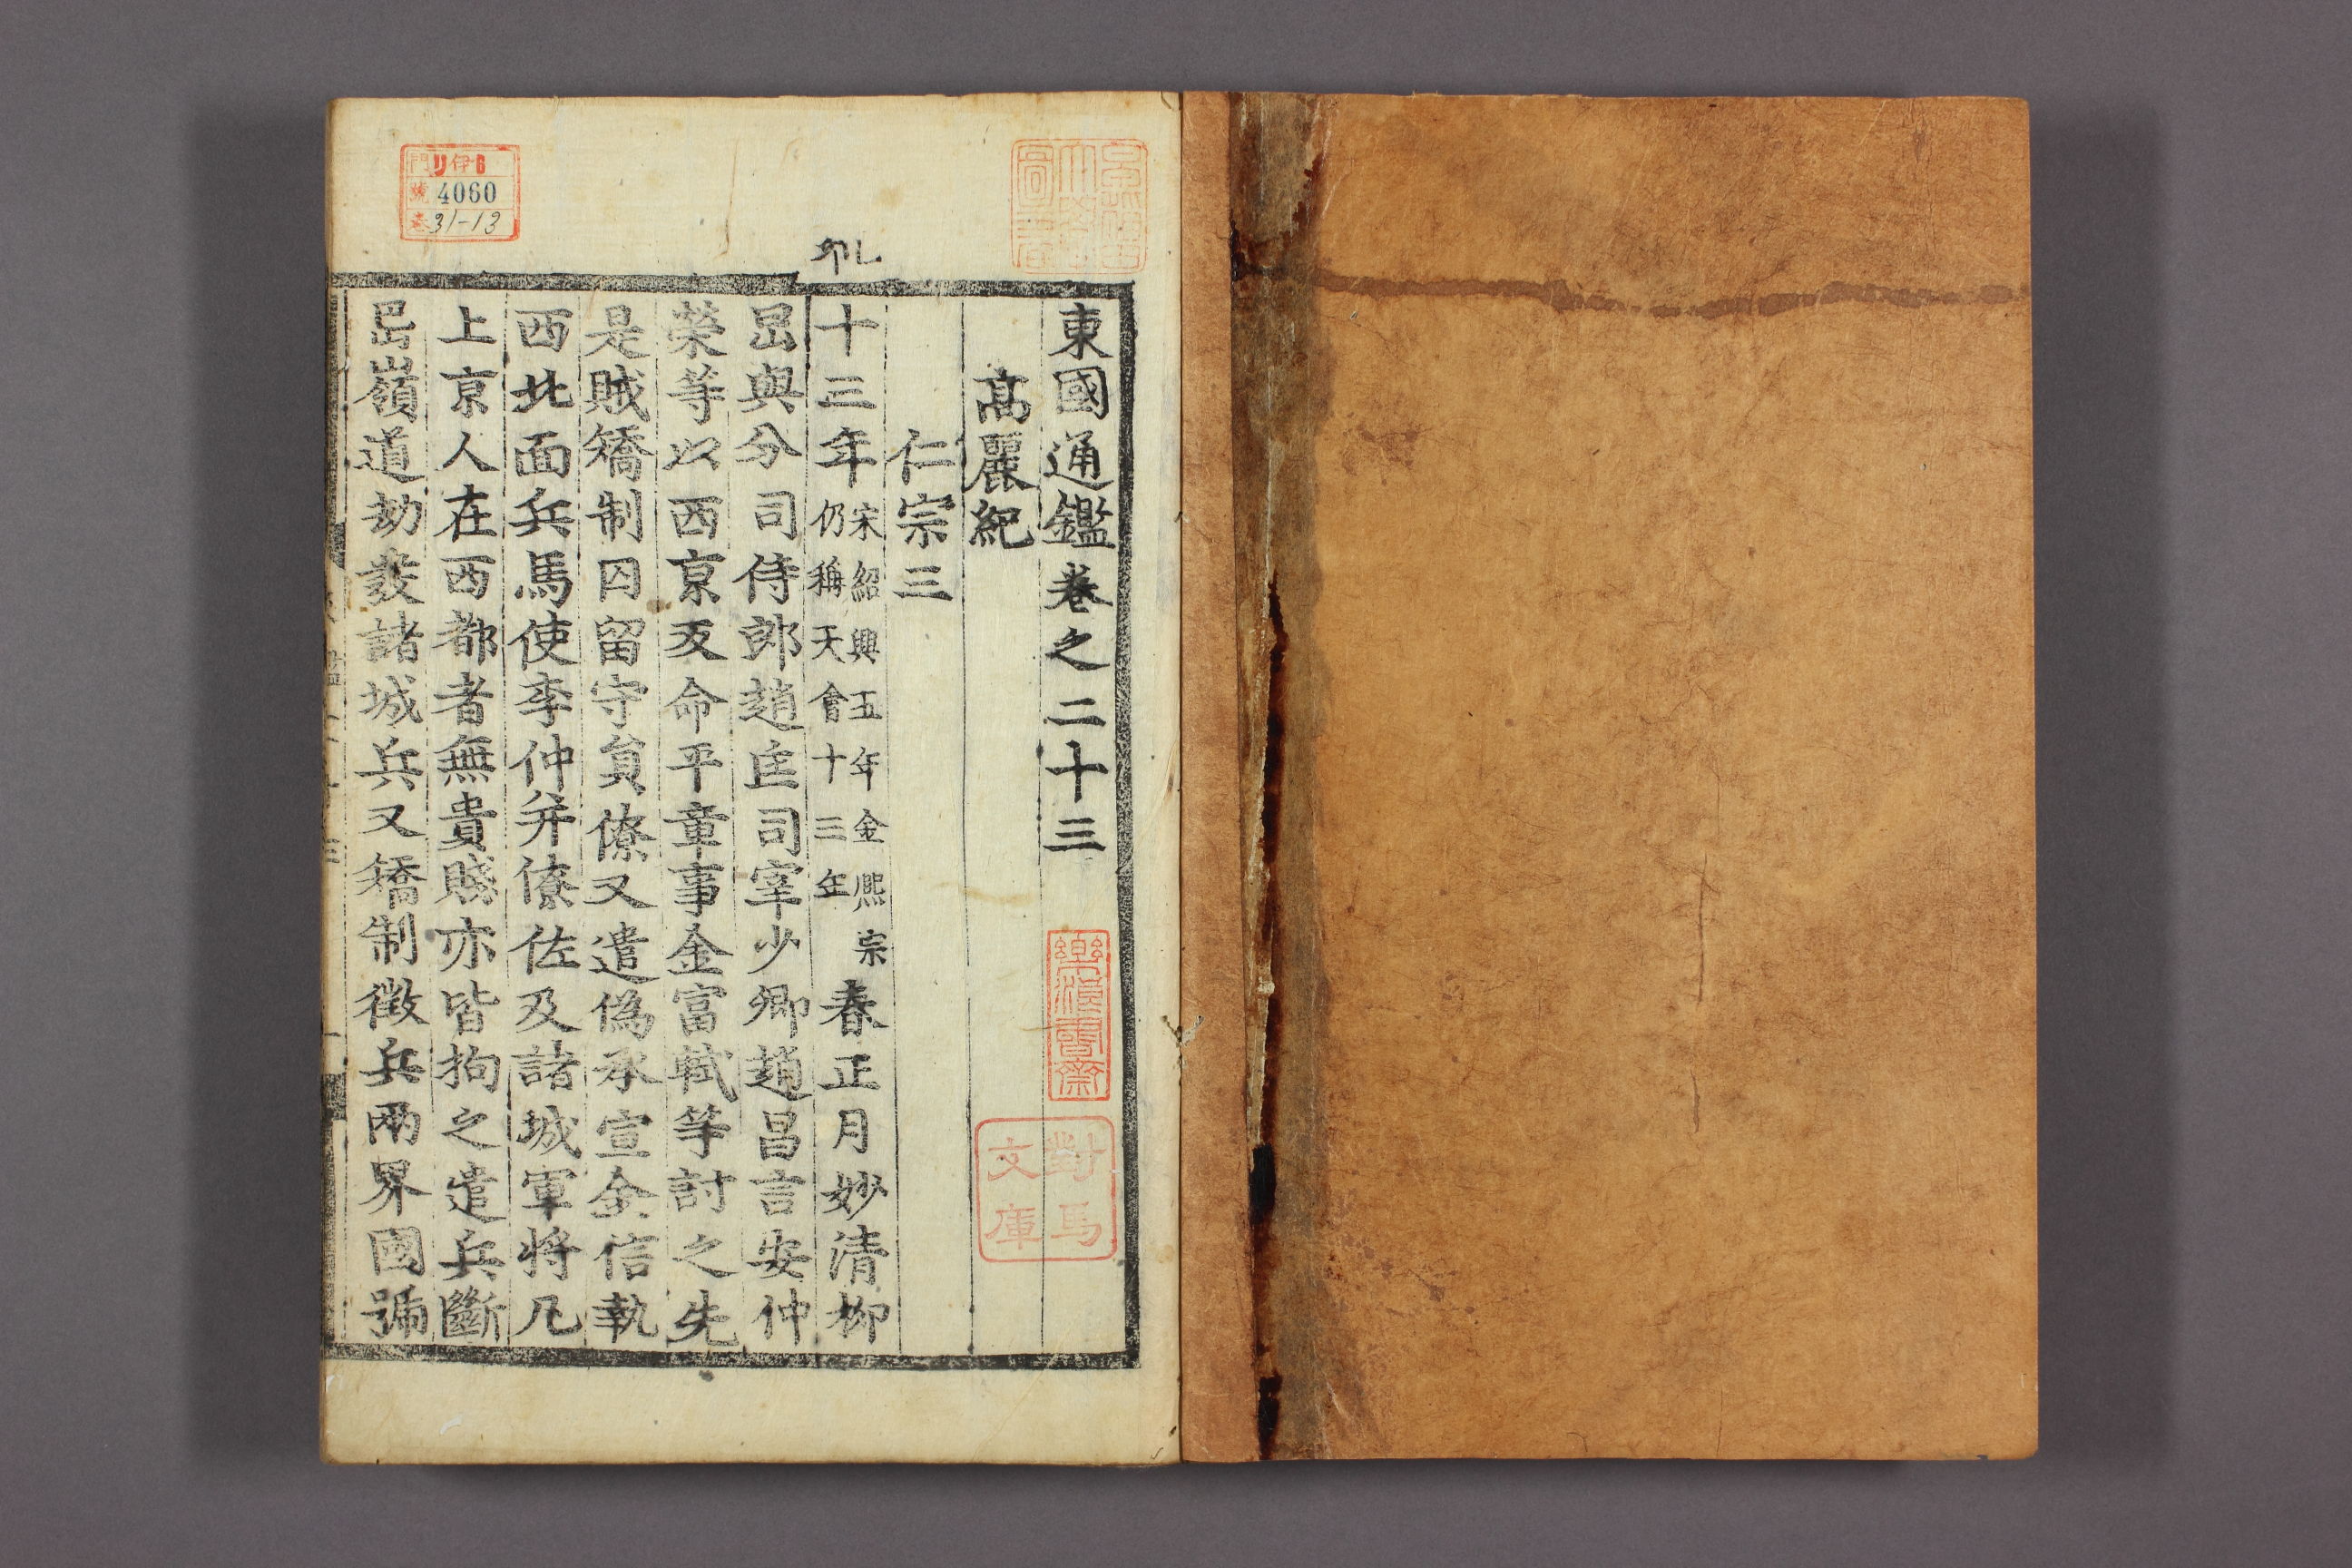 東國通鑑卷之二十三
高麗紀
仁宗三
十三年宋紹興五年金熙宗仍稱天會十三年春正月妙清柳
旵與分司侍郎趙匡司宰少卿趙昌言安仲
榮等以西京叛命平章事金富軾等討之先
是賊矯制囚留守負僚又遣偽承宣金信執
西北面兵馬使李仲并僚佐及諸城軍將凡
上京人在西都者無貴賤亦皆拘之遣兵斷
岊嶺道劫發諸城兵又矯制徵兵兩界國號
樂浪書齋
對馬
文庫
門リ伊6
號4060
卷31-13